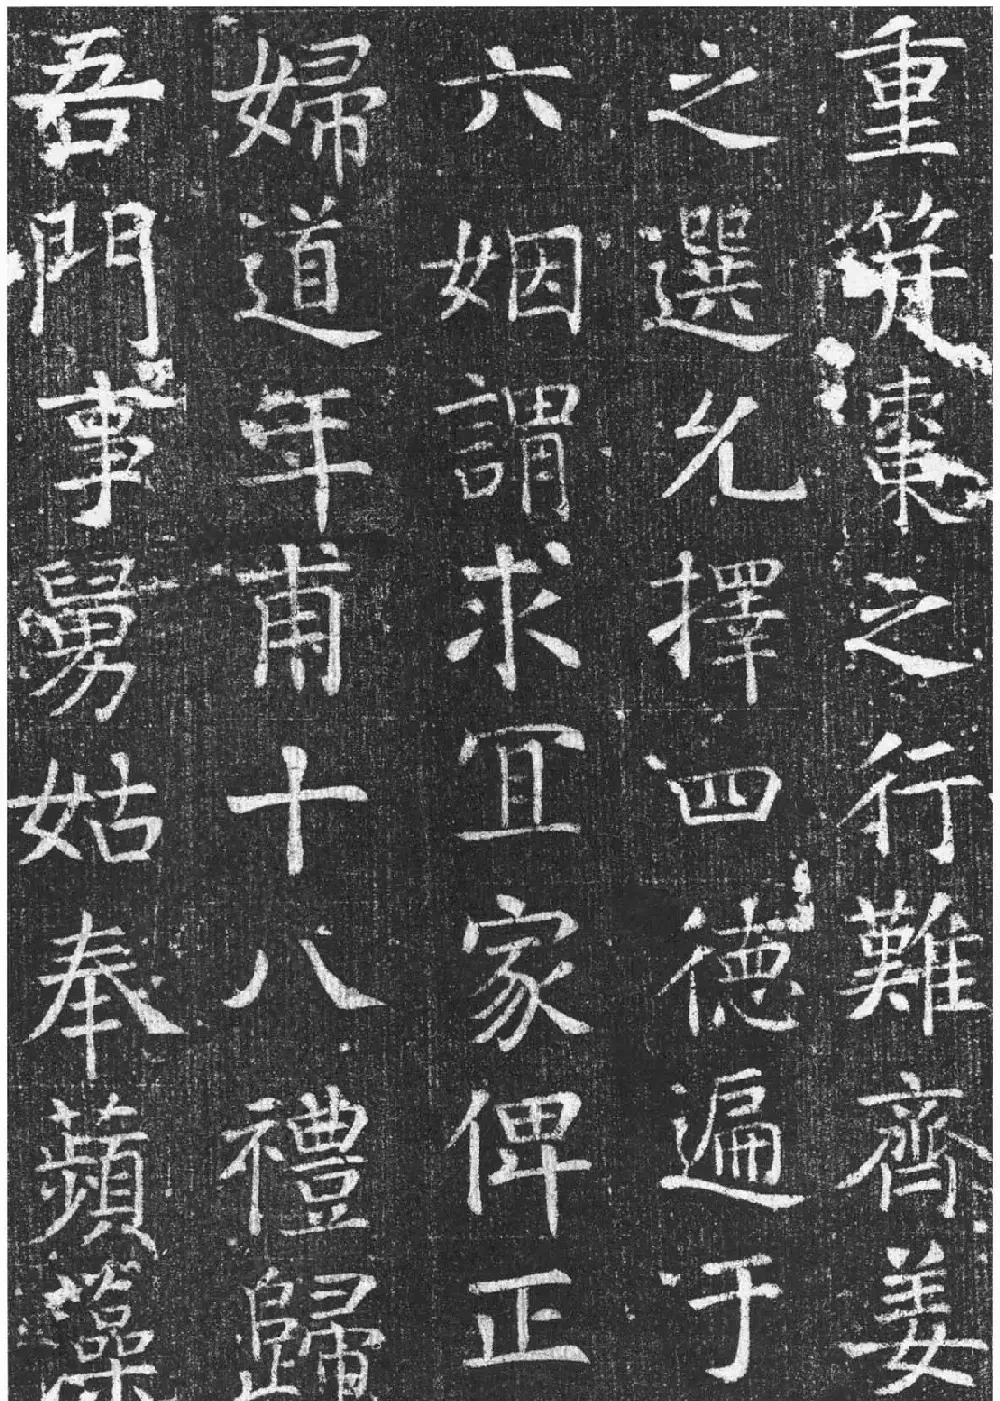 重笄棗之行難齊姜
之選允擇四德遍于
六姻謂求宜家俾正
婦道年甫十八禮歸
吾門事舅姑奉蘋藻